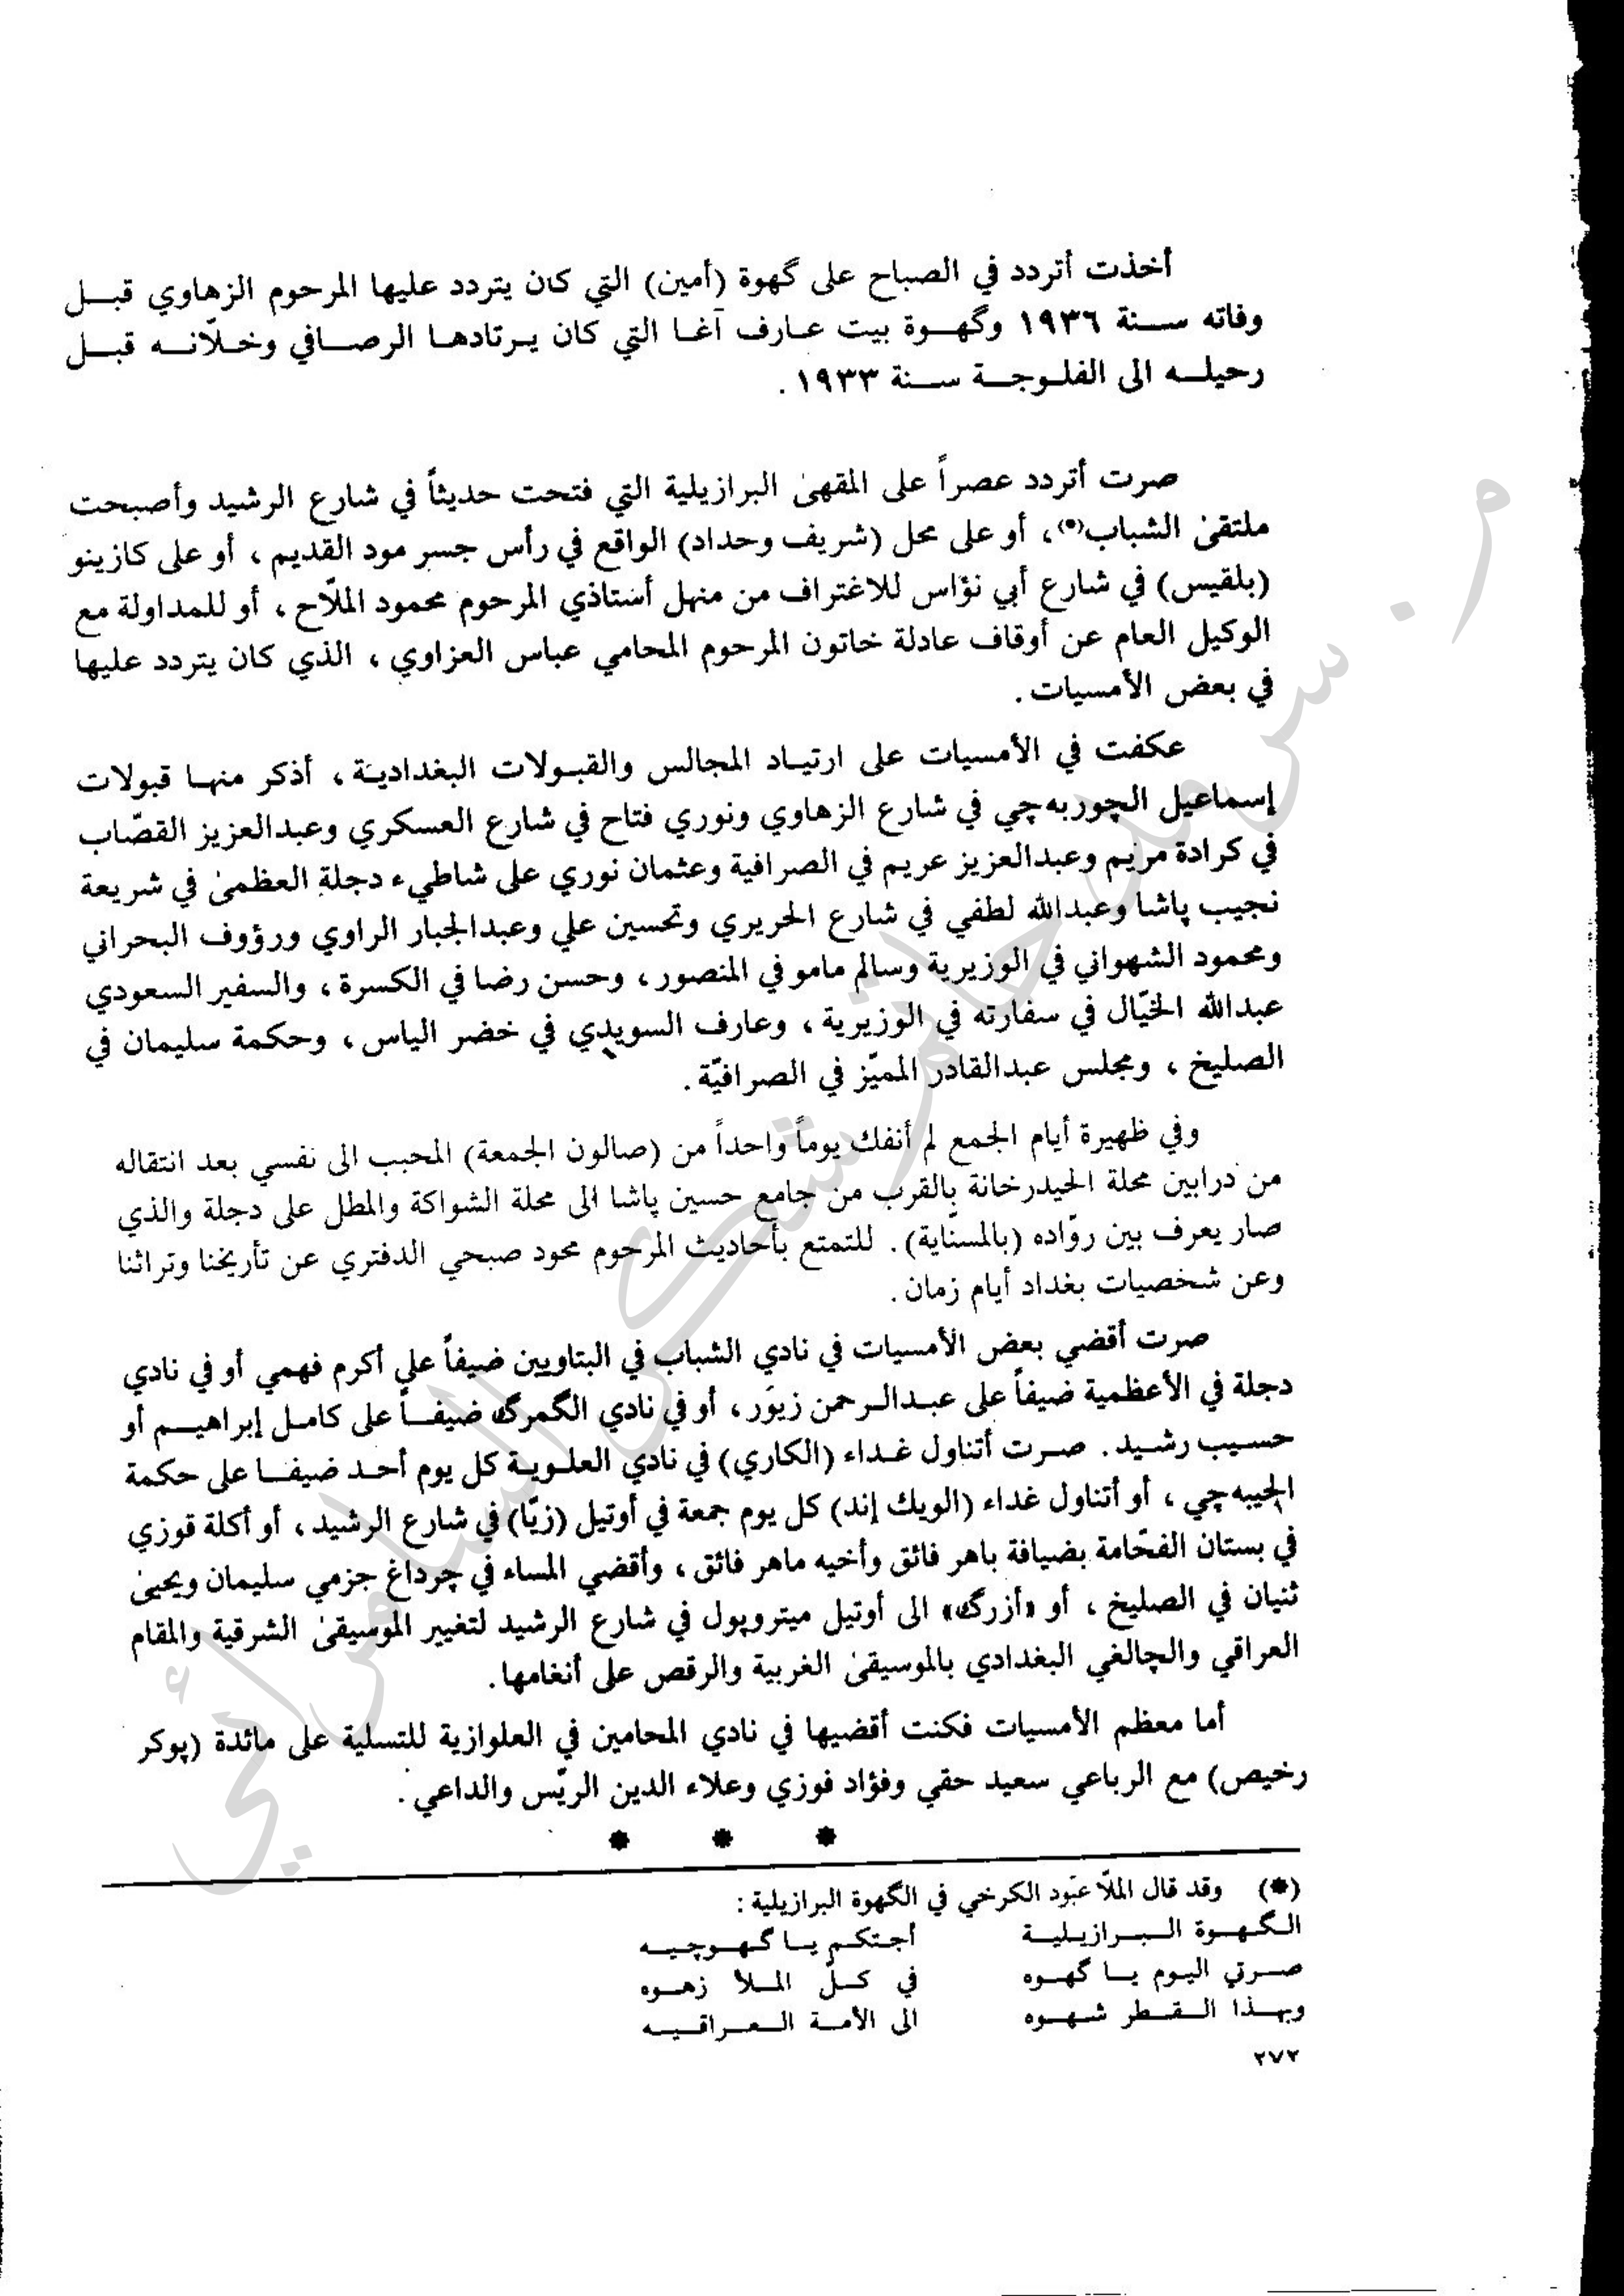 أخذت أتردد في الصباح على گهوة (أمين) التي كان يتردد عليها المرحوم الزهاوي قبل
وفاته سنة ١٩٣٦ وگهوة بيت عارف آغا التي كان يرتادها الرصافي وخلّانه قبل
رحيله الى الفلوجة سنة ١٩٣٣.
صرت أتردد عصراً على المقهىٰ البرازيلية التي فتحت حديثاً في شارع الرشيد وأصبحت
ملتقىٰ الشباب(*)، أو على محل (شريف وحداد) الواقع في رأس جسر مود القديم، أو على كازينو
(بلقيس) في شارع أبي نؤاس للاغتراف من منهل أستاذي المرحوم محمود الملّاح، أو للمداولة مع
الوكيل العام عن أوقاف عادلة خاتون المرحوم المحامي عباس العزاوي، الذي كان يتردد عليها
في بعض الأمسيات.
عكفت في الأمسيات على ارتياد المجالس والقبولات البغدادية، أذكر منها قبولات
إسماعيل الچوربه‌چي في شارع الزهاوي ونوري فتاح في شارع العسكري وعبدالعزيز القصّاب
في كرادة مريم وعبدالعزيز عريم في الصرافية وعثمان نوري على شاطيء دجلة العظمىٰ في شريعة
نجيب پاشا وعبدالله لطفي في شارع الحريري وتحسين علي وعبدالجبار الراوي ورؤوف البحراني
ومحمود الشهواني في الوزيرية وسالم مامو في المنصور، وحسن رضا في الكسرة، والسفير السعودي
عبدالله الخيّال في سفارته في الوزيرية، وعارف السويدي في خضر الياس، وحكمة سليمان في
الصليخ، ومجلس عبدالقادر المميّز في الصرافيّة.
وفي ظهيرة أيام الجمع لم أنفك يوماً واحداً من (صالون الجمعة) المحبب الى نفسي بعد انتقاله
من درابين محلة الحيدرخانة بالقرب من جامع حسين پاشا الى محلة الشواكة والمطل على دجلة والذي
صار يعرف بين روّاده (بالمسنّاية). للتمتع بأحاديث المرحوم محود صبحي الدفتري عن تأريخنا وتراثنا
وعن شخصيات بغداد أيام زمان.
صرت أقضي بعض الأمسيات في نادي الشباب في البتاويين ضيفاً على أكرم فهمي أو في نادي
دجلة في الأعظمية ضيفاً على عبدالرحمن زيوَر، أو في نادي الگمرگ ضيفاً على كامل إبراهيم أو
حسيب رشيد. صرت أتناول غداء (الكاري) في نادي العلوية كل يوم أحد ضيفا على حكمة
الچيبه‌چي، أو أتناول غداء (الويك إند) كل يوم جمعة في أوتيل (زيّا) في شارع الرشيد، أو أكلة قوزي
في بستان الفحّامة بضيافة باهر فائق وأخيه ماهر فائق، وأقضي المساء في چرداغ جزمي سليمان ويحيىٰ
ثنيان في الصليخ، أو «أزرگ» الى أوتيل ميتروپول في شارع الرشيد لتغيير الموسيقىٰ الشرقية والمقام
العراقي والچالغي البغدادي بالموسيقىٰ الغربية والرقص على أنغامها.
أما معظم الأمسيات فكنت أقضيها في نادي المحامين في العلوازية للتسلية على مائدة (پوكر
رخيص) مع الرباعي سعيد حقي وفؤاد فوزي وعلاء الدين الريّس والداعي.
* * *
(*) وقد قال الملّا عبّود الكرخي في الگهوة البرازيلية:
الگهوة البرازيلية أجتكم يا گهوچيه
صرتي اليوم يا گهوه في كلّ الملا زهوه
وبهذا القطر شهوه الى الأمة العراقيه
٢٧٢
م. سرمد حاتم شكر السامرائي